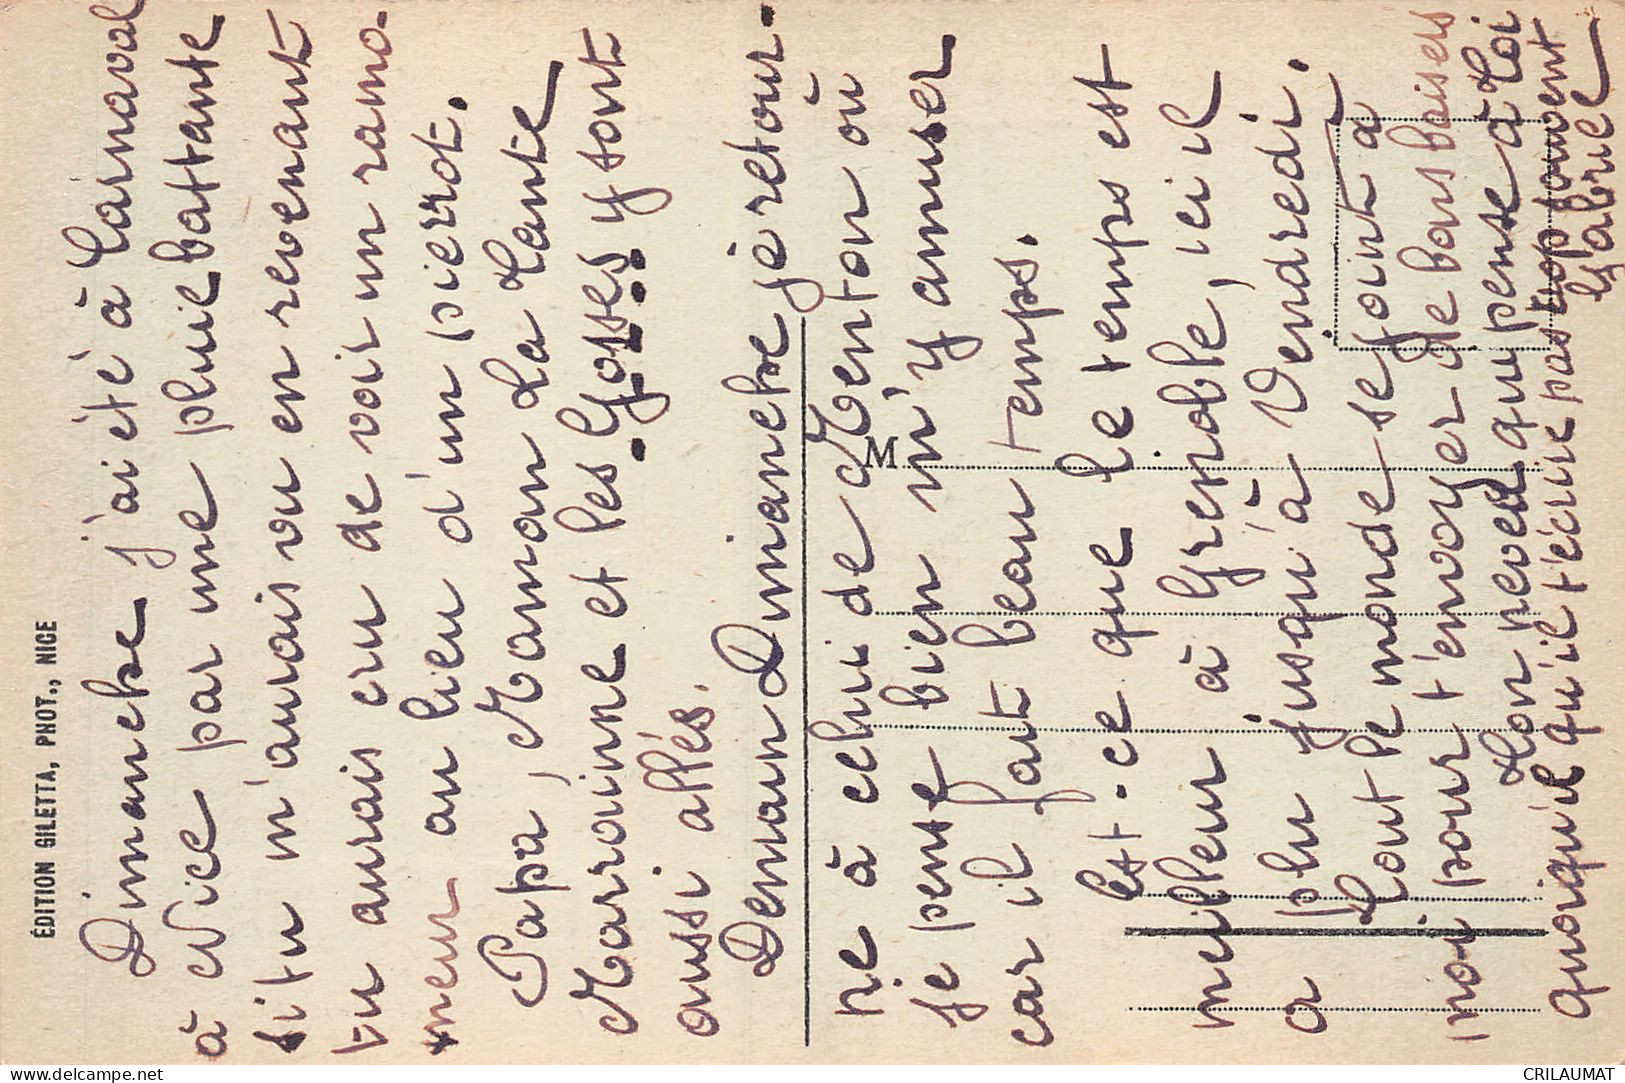 ÉDITION GILETTA, PHOT., NICE
Dimanche j'ai été à Carnaval
à Nice par une pluie battante
si tu m'aurais vu en revenant
tu aurais cru de voir un ramo-
neur au lieu d'un pierrot.
Papa, Maman La Tante
Marraine et les Gosses y sont
aussi allés.
Deman Dimanche je retour-
ne à celui de Menton où
je pense bien m'y amuser
car il fait beau temps.
Est-ce que le temps est
meilleur à Grenoble, ici il
a plu jusqu'à Vendredi.
Tout le monde se joint à
moi pour t'envoyer de bons baisers
Ton neveu qui pense à toi
quoiqu'il qu'il t'écrive pas trop souvent
Gabriel
M
delcampe.net
CRILAUMAT